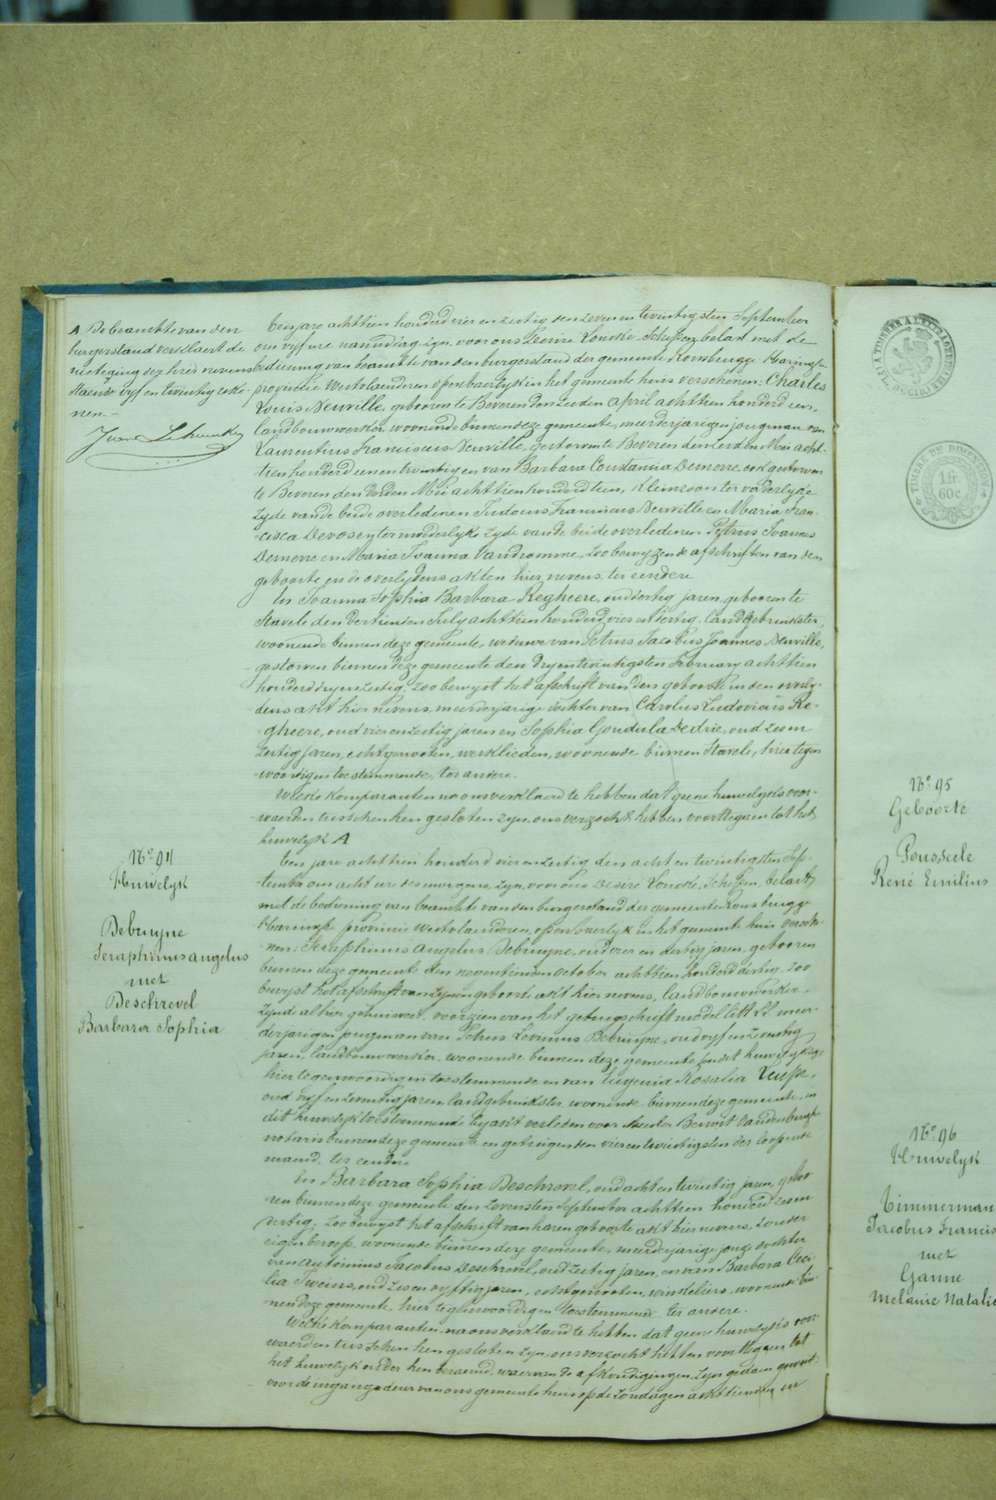 A De beambte van den
burgerstand verklaert de
nietiging dezer es nevens
staende vyf en twintig
nen.
ten jare achttien honderd vier en zestig den zeven en twintigsten September
om vyf ure namiddag zyn voor ons Desiré Loncke Schepen belast met de
bediening van beambte van den burgerstand der gemeente Rousbrugge Haringhe
provincie Westvlaenderen openbaerlyk in het gemeente huis verschenen: Charles
Louis Neuville, geboren te Beveren den zesden April achttien honderd een,
landbouwwerker woonende binnen deze gemeente, meerderjarigen jongman van
Laurentius Franciscus Neuville, gestorven te Beveren den eersten Mei acht-
tien honderd een en twintig en van Barbara Constantia Demerre ook gestorven
te Beveren den derden Mei achttien honderd tien, kleinzoon ter vaderlyke
zyde van de beide overledenen Judocus Franciscus Neuville en Maria Fran-
cisca Devos en ter moederlyke zyde van de beide overledenen Petrus Joannes
Demerre en Maria Joanna Vandromme, zoo bewyzen de afschriften van den
geboorte en de overlydens akten hier nevens ter eendere
En Joanna Sophia Barbara Regheere, oud dertig jaren, geboren te
Stavele den dertienten July achttien honderd vier en dertig, landgebruikster,
woonende binnen deze gemeente, weduwe van Petrus Jacobus Joannes Neuville,
gestorven binnen deze gemeente den dry en twintigsten February achttien
honderd dry en zestig, zoo bewyst het afschrift van den geboorte en den overly-
dens akt hier nevens, meerderjarige dochter van Carolus Ludovicus Re-
gheere, oud vier en zestig jaren en Sophia Gondula Dedrie, oud zes en
zestig jaren, echtgenooten, werklieden, woonende binnen Stavele, hier tegen
woordig en toestemmende, ter andere.
Welke komparanten na ons verklaerd te hebben dat geene huwelyks voor-
waerden tusschen hen gesloten zyn, ons verzocht hebben voort te gaen tot het
huwelyk A
No 94
Huwelyk
Debruyne
Seraphinus angelus
met
Deschrevel
Barbara Sophia
ten jare achttien honderd vier en zestig den acht en twintigsten Sep-
tember om acht ure des morgens, zyn voor ons Desire Loncke, Schepen, belast
met de bediening van beambte van den burgerstand der gemeente Rousbrugge
Haringhe provincie Westvlaenderen, openbaerlyk in het gemeente huis versche-
nen: Seraphinus angelus Debruyne, oud vier en dertig jaren, geboren
binnen deze gemeente den neventienen October achttien honderd dertig, zoo
bewyst het afschrift van zynen geboorte akt hier nevens, landbouwwerker,
zynde alhier gehuisvest, voorzien van het getuigschrift model litt. meer-
derjarigen jongman van Petrus Livinus Debruyne, oud vyf en zeventig
jaren, landbouwwerker, woonende binnen deze gemeente, in dit huwelyk
hier tegenwoordig en toestemmende en van Eugenia Rosalia
oud vyf en zeventig jaren, landgebruikster, woonende binnen deze gemeente, in
dit huwelyk toestemmende by akt verleden voor Benoit Vandenberghe
notaris binnen deze gemeente en getuigen den vier en twintigsten der loopende
maend, ter eendre
En Barbara Sophia Deschrevel, oud acht en twintig jaren, gebo-
ren binnen deze gemeente den zevensten September achttien honderd zes en
dertig, zoo bewyst het afschrift van haren geboorte akt hier nevens, zonder
eigen beroep, woonende binnen deze gemeente, meerderjarige jonge dochter
van antonius Jacobus Deschrevel, oud zestig jaren, en van Barbara Ceci-
lia Sweins, oud zes en vyftig jaren, echtgenooten, winkeliers, woonende bin-
nen deze gemeente, hier tegenwoordig en toestemmende, ter andere.
Welke komparanten na ons verklaerd te hebben dat geene huwelyks voor-
waerden tusschen hen gesloten zyn, ons verzocht hebben voort te gaen tot
het huwelyk onder hen beraemd, waer van de afkondigingen zyn gedaen geweest
voor de ingangs deur van ons gemeente huis op de zondagen achttienden en
TIMBRE DE DIMENSION
1 fr
60c
No 95
Geboorte
Pousseele
René Emilius
No 96
Huwelyk
Timmerman
Jacobus Francis
met
Ganne
Melanie Natalie